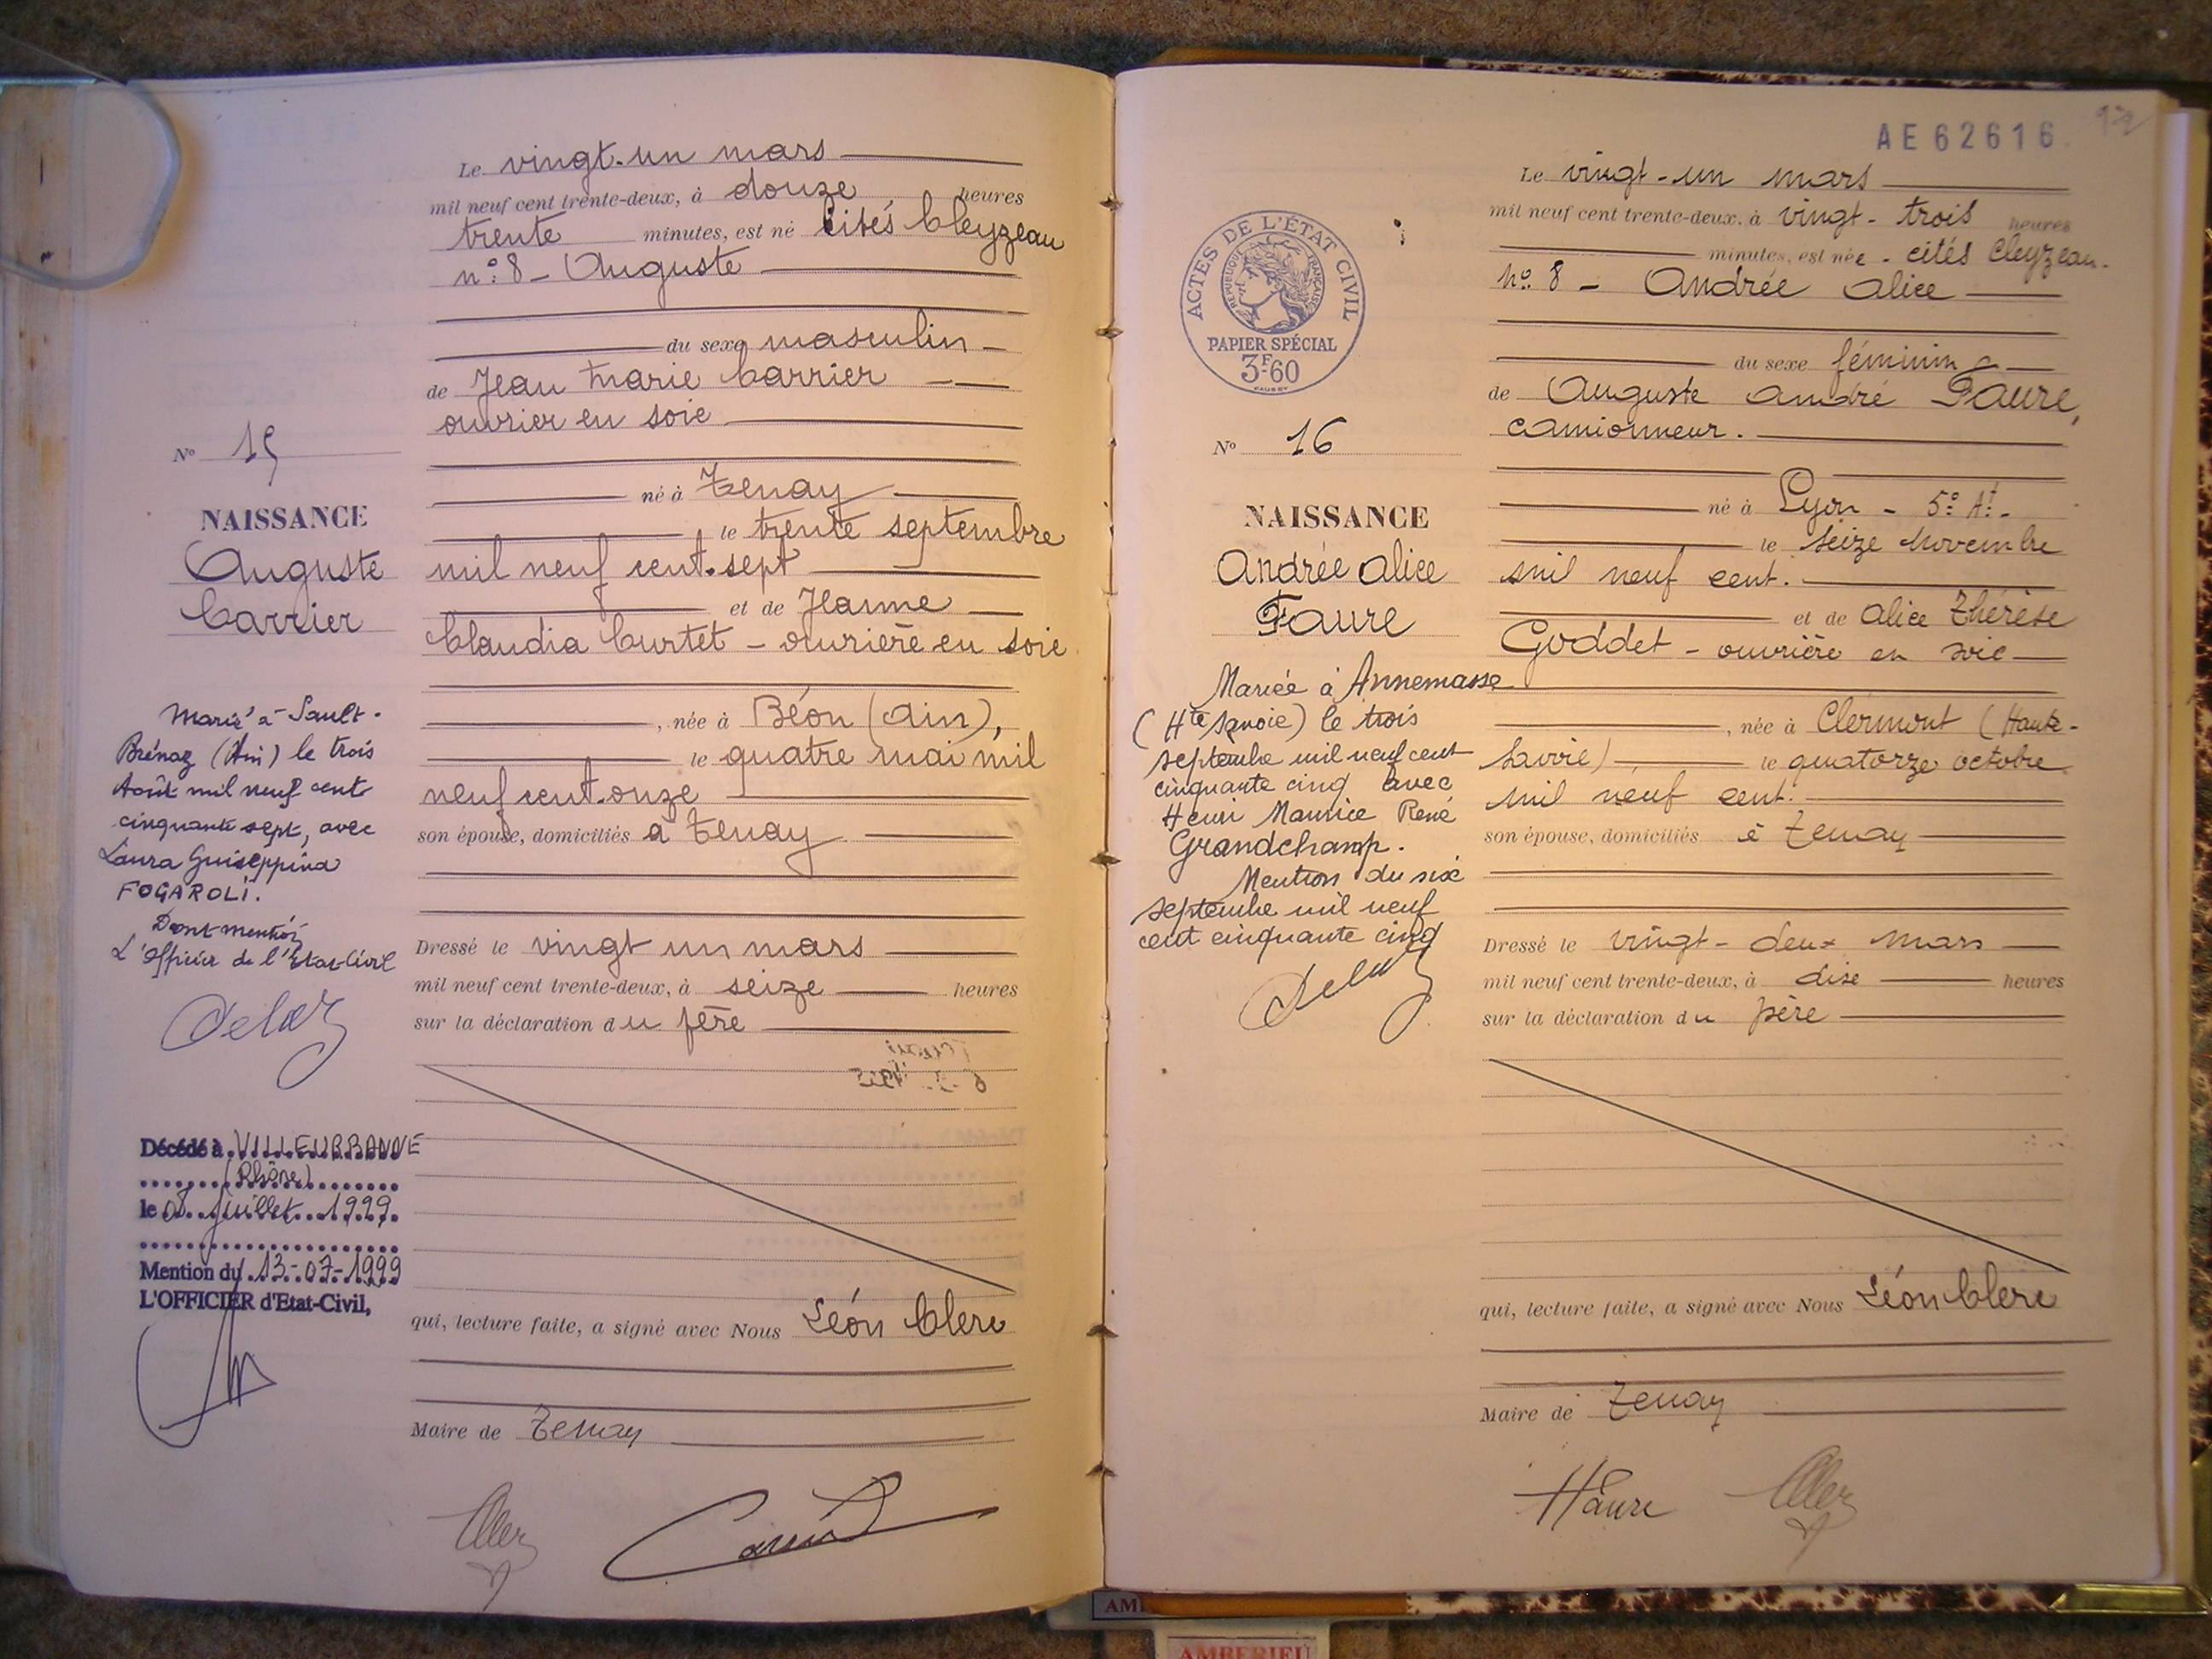 Le vingt-un mars
mil neuf cent trente-deux, à douze heures
trente minutes, est né Cités Cleyzeau
n:8 - Auguste
du sexe masculin
de Jean Marie Carrier
ouvrier en soie
né à Tenay
le trente septembre
mil neuf cent sept
et de Jeanne
Claudia Curtet - ouvrière en soie
, née à Béon (Ain),
le quatre mai mil
neuf cent onze
son épouse, domiciliés à Tenay
Dressé le vingt un mars
mil neuf cent trente-deux, à seize heures
sur la déclaration du père
qui, lecture faite, a signé avec Nous Léon Clerc
Maire de Tenay
No 15
NAISSANCE
Auguste
Carrier
Marié à Sault-
Brénaz (Ain) le trois
Août mil neuf cent
cinquante sept, avec
Laura Guiseppina
FOGAROLI.
Dont mention,
L'Officier de l'Etat-Civil
Décédé à VILLEURBANNE
(Rhône)
le 08 Juillet 1999.
Mention du 13-07-1999
L'OFFICIER d'Etat-Civil,
AE62616
Le vingt-un mars
mil neuf cent trente-deux, à vingt-trois heures
minutes, est née - cités Cleyzeau-
No 8 - Andrée Alice
du sexe féminin
de Auguste André Faure,
camionneur.
né à Lyon - 5e At -
le seize Novembre
mil neuf cent.
et de Alice Thérèse
Goddet - ouvrière en soie
, née à Clermont (Haute-
Savoie) le quatorze octobre
mil neuf cent.
son épouse, domiciliés à Tenay
Dressé le vingt-deux mars
mil neuf cent trente-deux, à dise heures
sur la déclaration du père
qui, lecture faite, a signé avec Nous Léon Clerc
Maire de Tenay
Faure
ACTES DE L'ÉTAT CIVIL
RÉPUBLIQUE FRANÇAISE
PAPIER SPÉCIAL
3F60
No 16
NAISSANCE
Andrée Alice
Faure
Mariée à Annemasse
(Hte Savoie) le trois
septembre mil neuf cent
cinquante cinq avec
Henri Maurice René
Grandchamp.
Mention du six
septembre mil neuf
cent cinquante cinq
AMBERIEU